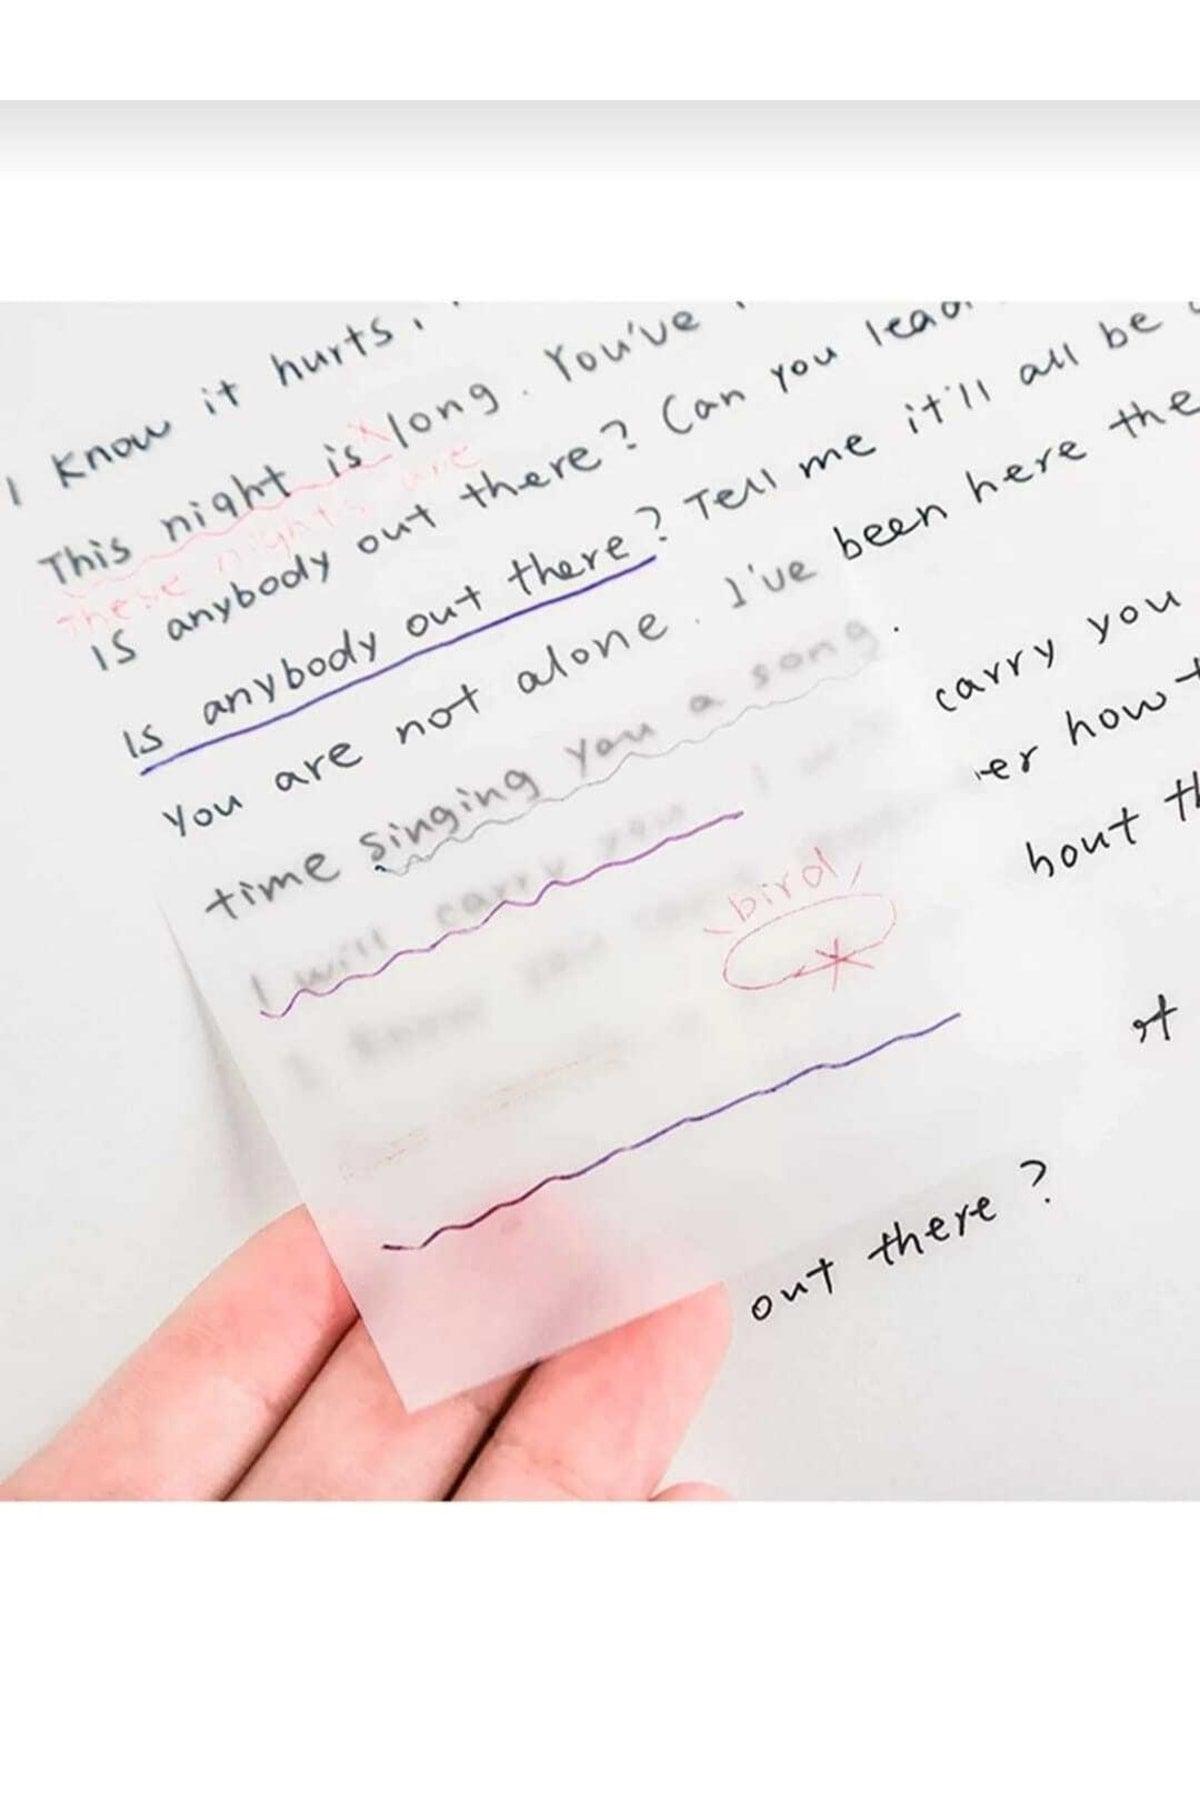 I know it hurts,
This night is long. You've
these nights are
Is anybody out there? Can you lead
Is anybody out there? Tell me it'll all be
You are not alone. I've been here the
time singing you a song.
I will carry you. I will carry you
I know you er how t
bird
hout th
out there?